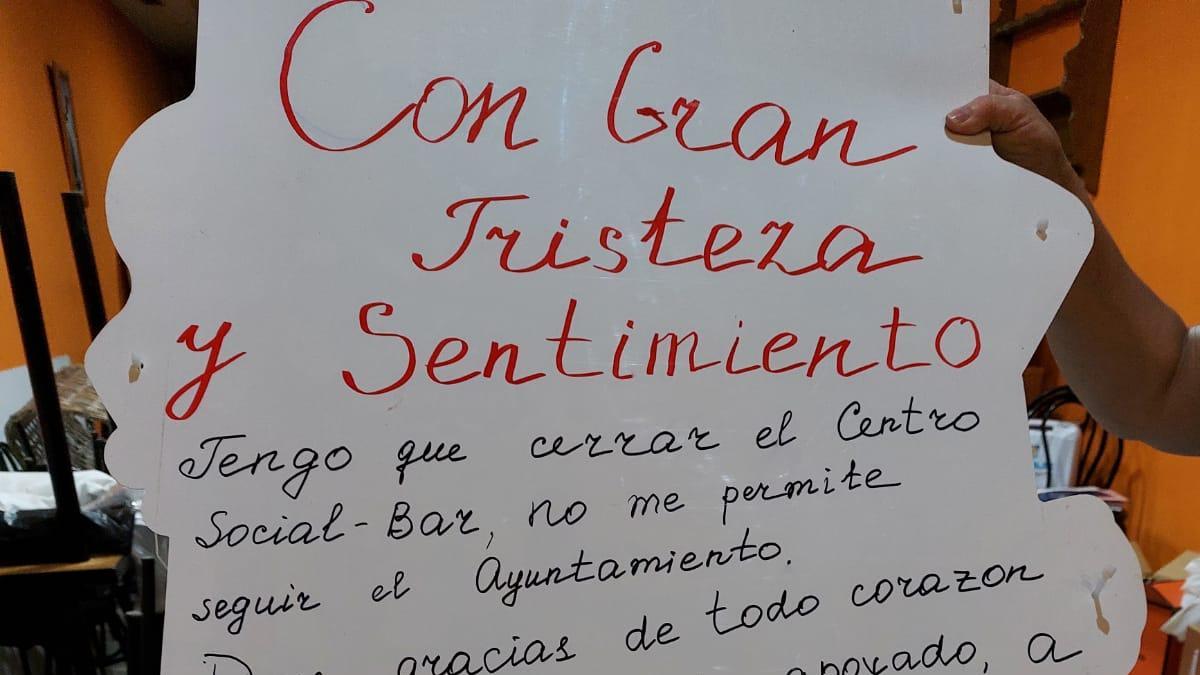 Con Gran
Tristeza
y Sentimiento
Tengo que cerrar el Centro
Social-Bar, no me permite
seguir el Ayuntamiento.
gracias de todo corazon
apoyado, a